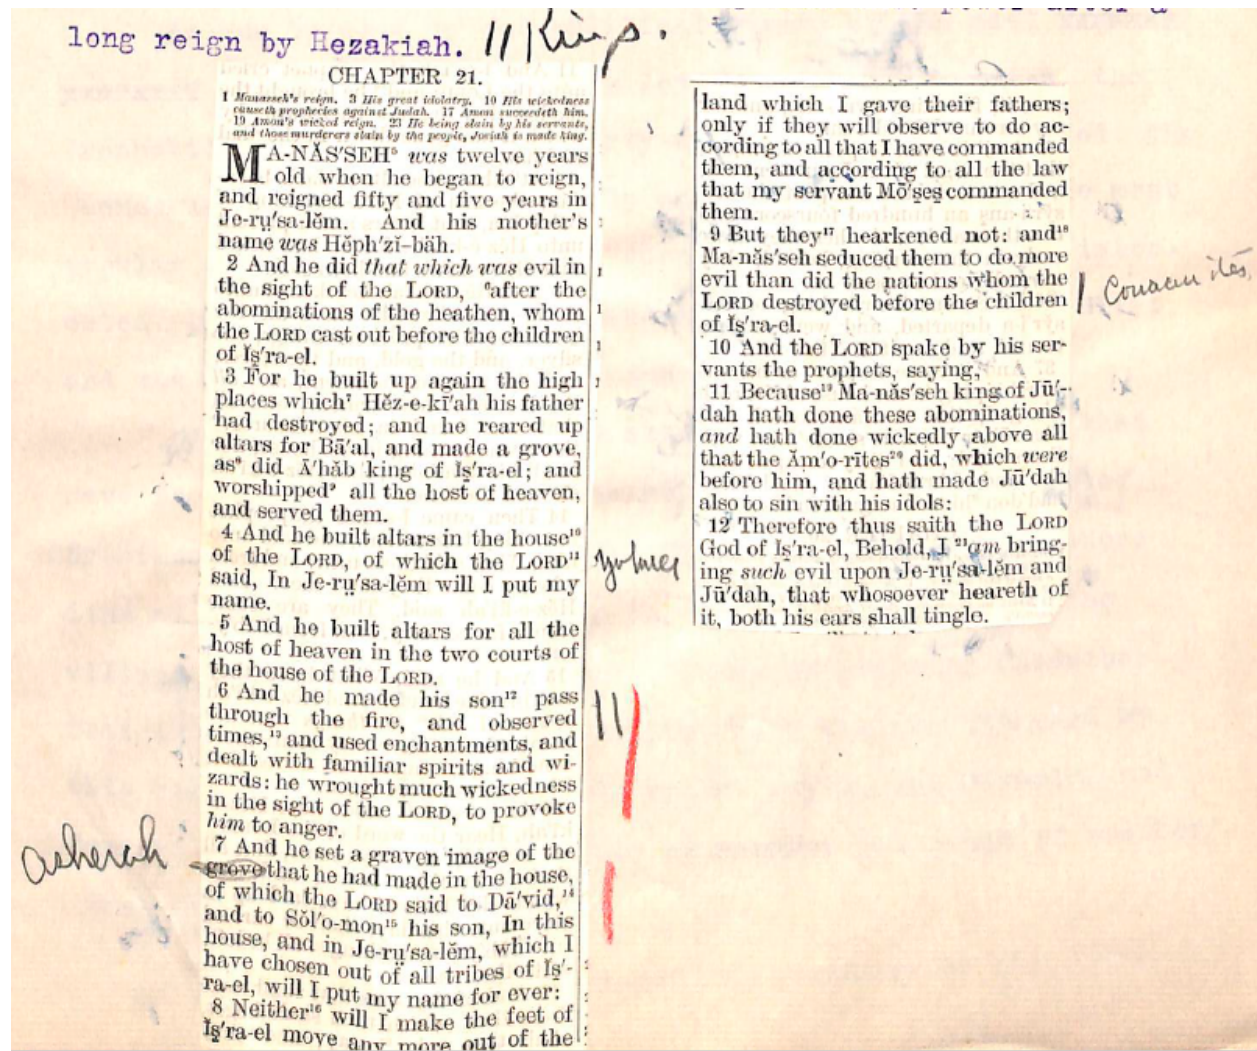 long reign by Hezakiah. II Kings.
CHAPTER 21.
1 Manasseh's reign. 3 His great idolatry. 10 His wickedness
causeth prophecies against Judah. 17 Amon succeedeth him.
19 Amon's wicked reign. 23 He being slain by his servants,
and those murderers slain by the people, Josiah is made king.
MA-NĂS′SEH⁵ was twelve years
old when he began to reign,
and reigned fifty and five years in
Je-rṳ′sa-lĕm. And his mother's
name was Hĕph′zĭ–bäh.
2 And he did that which was evil in
the sight of the LORD, ⁶after the
abominations of the heathen, whom
the LORD cast out before the children
of Ĭş′ra-el.
3 For he built up again the high
places which⁷ Hĕz-e-kī′ah his father
had destroyed; and he reared up
altars for Bā′al, and made a grove,
as⁸ did Ā′hăb king of Ĭş′ra-el; and
worshipped⁹ all the host of heaven,
and served them.
4 And he built altars in the house¹⁰
of the LORD, of which the LORD¹¹
said, In Je-rṳ′sa-lĕm will I put my
name.
5 And he built altars for all the
host of heaven in the two courts of
the house of the LORD.
6 And he made his son¹² pass
through the fire, and observed
times,¹³ and used enchantments, and
dealt with familiar spirits and wi-
zards: he wrought much wickedness
in the sight of the LORD, to provoke
him to anger.
7 And he set a graven image of the
asherah
grove that he had made in the house,
of which the LORD said to Dā′vid,¹⁴
and to Sŏl′o-mon¹⁵ his son, In this
house, and in Je-rṳ′sa-lĕm, which I
have chosen out of all tribes of Ĭş′-
ra-el, will I put my name for ever:
8 Neither¹⁶ will I make the feet of
Ĭş′ra-el move any more out of the
land which I gave their fathers;
only if they will observe to do ac-
cording to all that I have commanded
them, and according to all the law
that my servant Mō′şeş commanded
them.
9 But they¹⁷ hearkened not: and¹⁸
Ma-năs′seh seduced them to do more
evil than did the nations whom the
LORD destroyed before the children
of Ĭş′ra-el.
10 And the LORD spake by his ser-
vants the prophets, saying,
11 Because¹⁹ Ma-năs′seh king of Jū′-
dah hath done these abominations,
and hath done wickedly above all
that the Ăm′o-rītes²⁰ did, which were
before him, and hath made Jū′dah
also to sin with his idols:
12 Therefore thus saith the LORD
God of Ĭş′ra-el, Behold, I ²¹am bring-
ing such evil upon Je-rṳ′sa-lĕm and
Jū′dah, that whosoever heareth of
it, both his ears shall tingle.